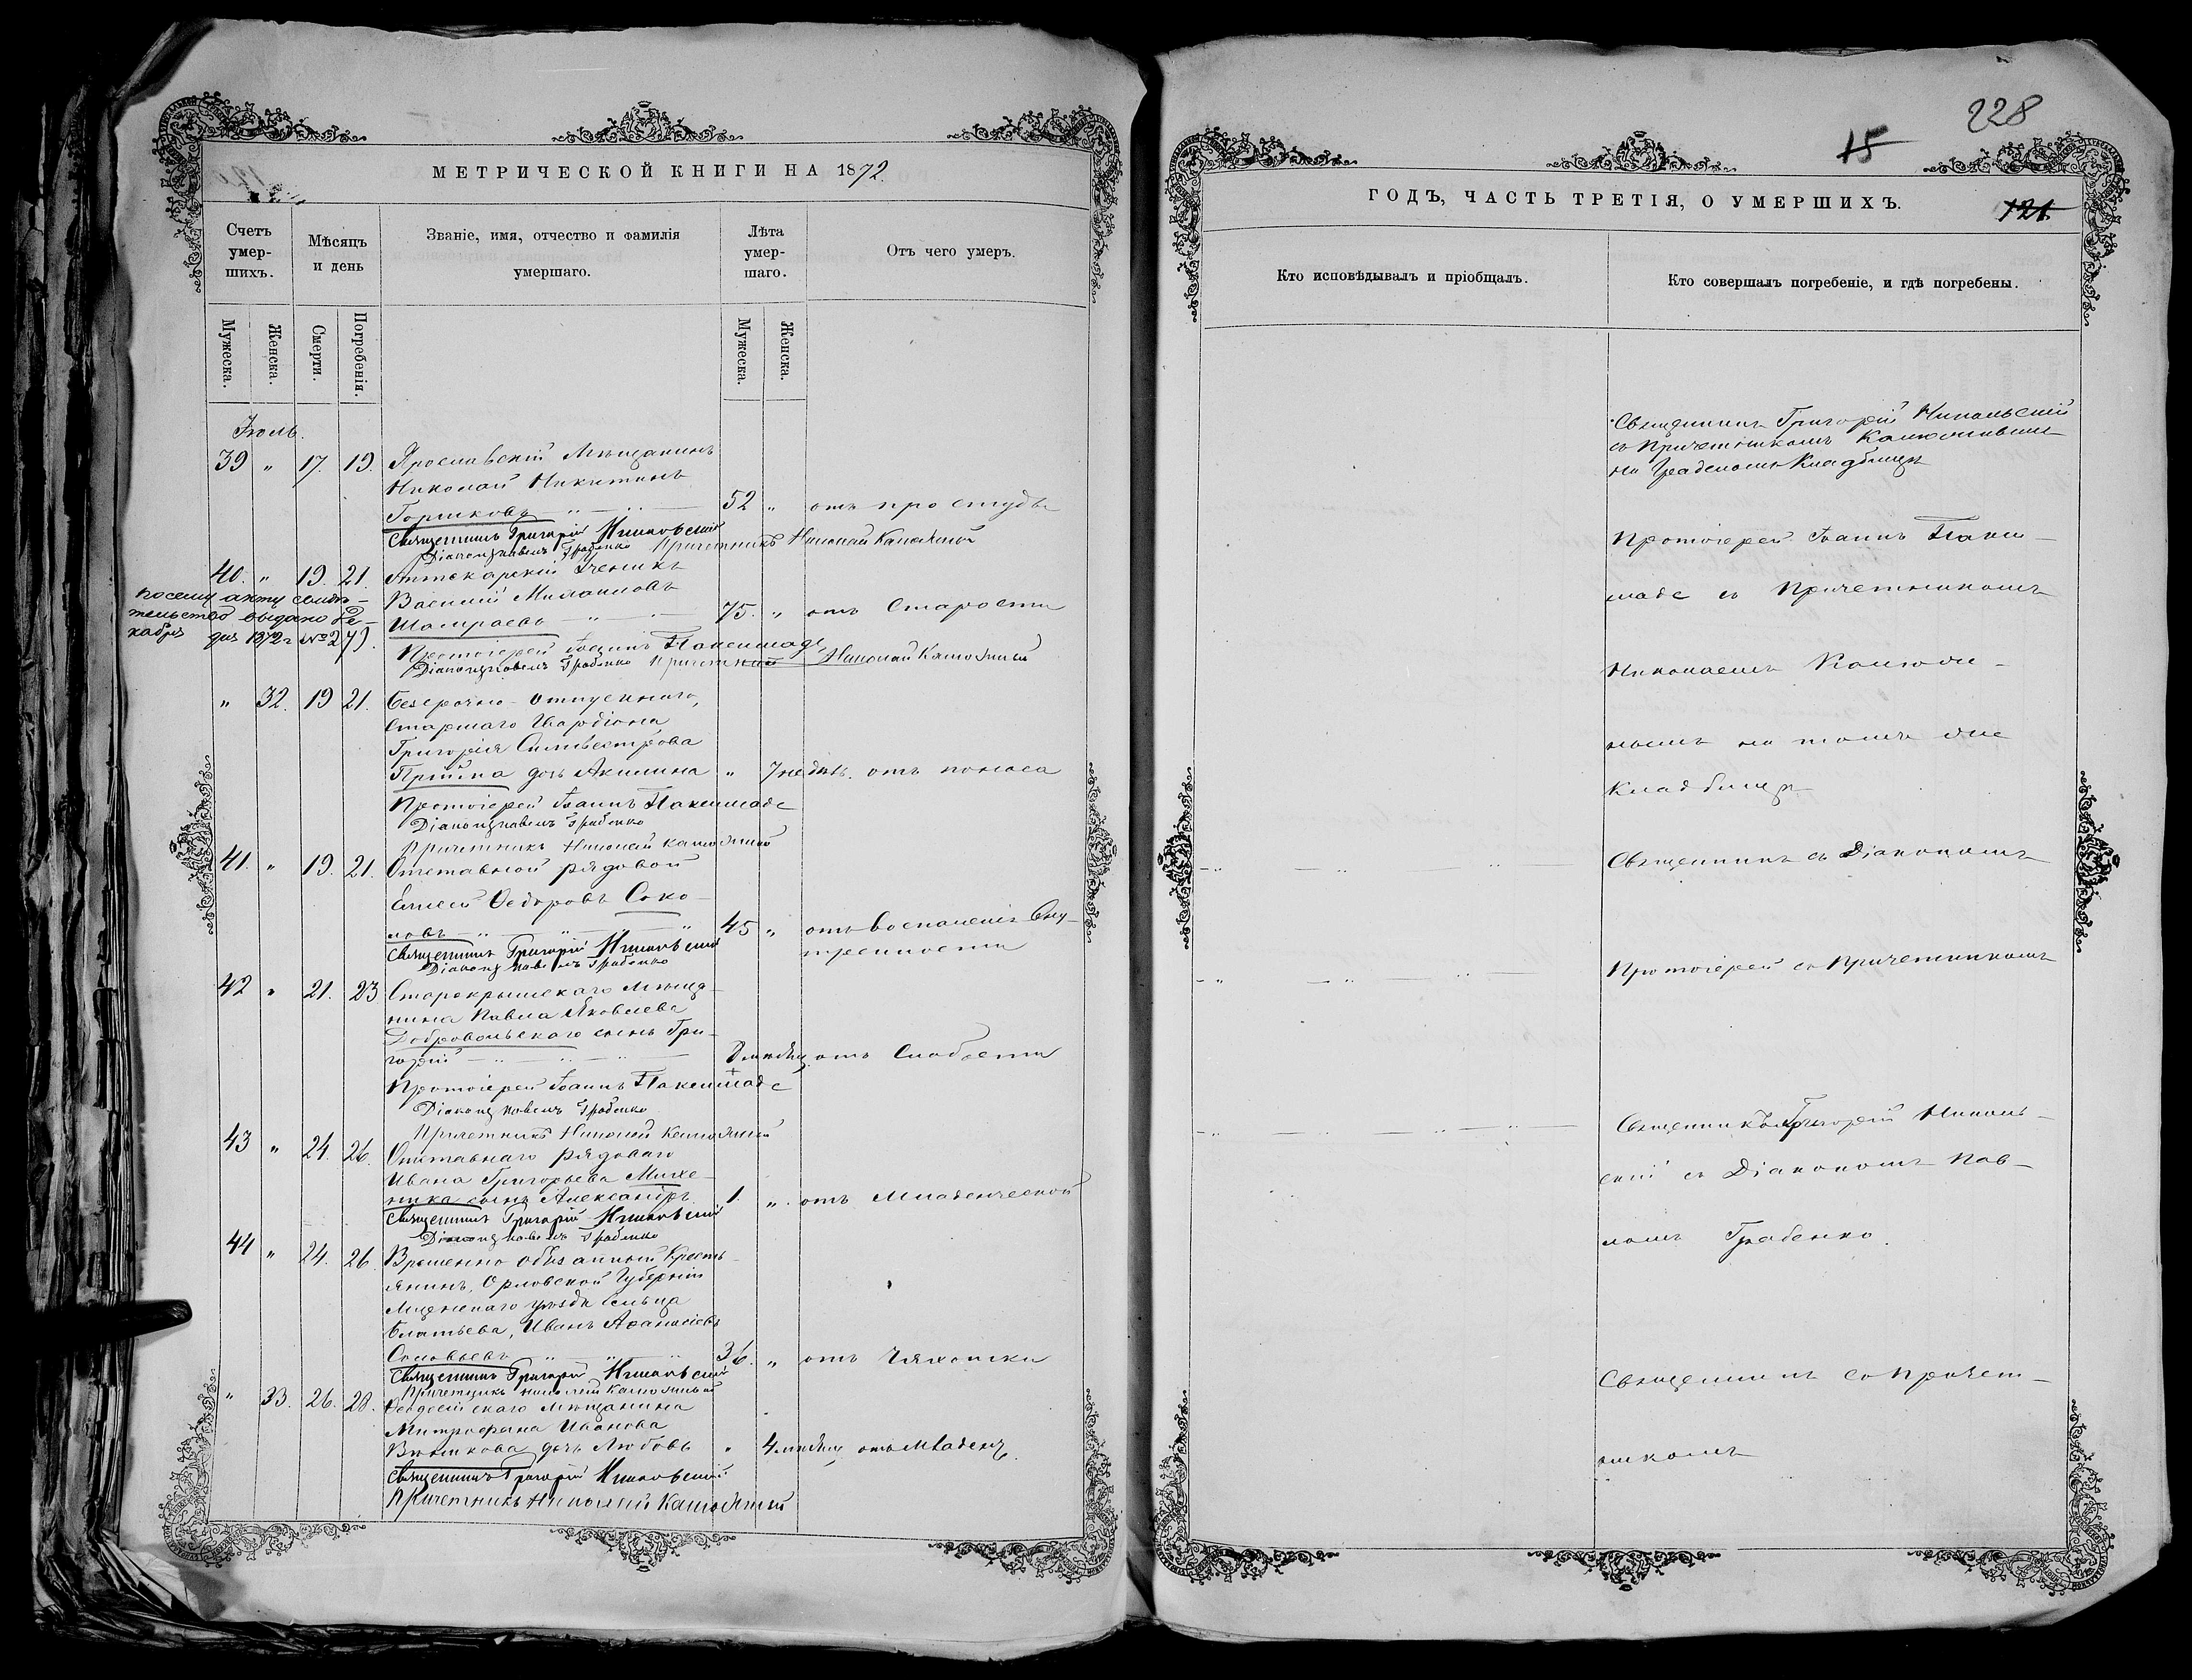 МЕТРИЧЕСКОЙ КНИГИ НА 1872.
Счетъ умер-шихъ.
Мѣсяцъ и день
Званіе, имя, отчество и фамилія умершаго.
Лѣта умер-шаго.
Отъ чего умеръ.
Мужеска.
Женска.
Смерти.
Погребенія.
Мужеска.
Женска.
Іюль.
39 " 17. 19. Ярославскій Мѣщанинъ
Николай Никитинъ
Горшковъ 52 " отъ простуды
Священникъ Григорій Никольскій
Діаконъ Павелъ Грабенко Причетникъ Николай
40. " 19. 21. Аптекарскій Ученикъ
Василій
75. " отъ Старости
По сему акту свидѣ-
тельство выдано Де-
кабря дня 1872 г. №
Протоіерей Іоаннъ
Діаконъ Павелъ Грабенко Николай
" 32. 19 21. Безсрочно-отпускнаго,
Старшаго
Григорія Сильвестрова
дочь Акилина " 7 недѣль. отъ поноса
Протоіерей Іоаннъ
Діаконъ Павелъ Грабенко
Причетникъ Николай
41. " 19. 21. Отставной рядовой
Елисей Ѳедоровъ Соко-
ловъ 45 " отъ Воспаленія Вну-
тренности
Священникъ Григорій Никольскій
Діаконъ Павелъ Грабенко
42 " 21. 23 Старокрымскаго Мѣща-
нина Павла Яковлева
Добровольскаго сынъ Гри-
горій отъ Слабости
Протоіерей Іоаннъ
Діаконъ Павелъ Грабенко
Причетникъ Николай
43 " 24. 26. Отставнаго рядоваго
Ивана Григорьева Михе-
сынъ Александръ 1. " отъ Младенческой
Священникъ Григорій Никольскій
Діаконъ Павелъ Грабенко
44 " 24. 26. Временно обязанный Кресть-
янинъ, Орловской Губерніи
Мценскаго уѣзда сельца
Иванъ Аѳанасіевъ
Соловьевъ 36. " отъ Чахотки
Священникъ Григорій Никольскій
Причетникъ Николай
" 33. 26. 28. Ѳеодосійскаго Мѣщанина
Митрофана Иванова
дочь Любовь " 4 мѣсяц отъ Младенч.
Священникъ Григорій Никольскій
Причетникъ Николай
228
15
ГОДЪ, ЧАСТЬ ТРЕТІЯ, О УМЕРШИХЪ.
121.
Кто исповѣдывалъ и пріобщалъ.
Кто совершалъ погребеніе, и гдѣ погребены.
Священникъ Григорій Никольскій
съ Причетникомъ
на Градскомъ Кладбищѣ
Протоіерей Іоаннъ
съ Причетникомъ
Николаемъ
на томъ же
Кладбищѣ
Священникъ съ Діакономъ
Протоіерей съ Причетникомъ
Священникъ Григорій Николь-
скій съ Діакономъ Пав-
ломъ Грабенко.
Священникъ съ Причет-
никомъ